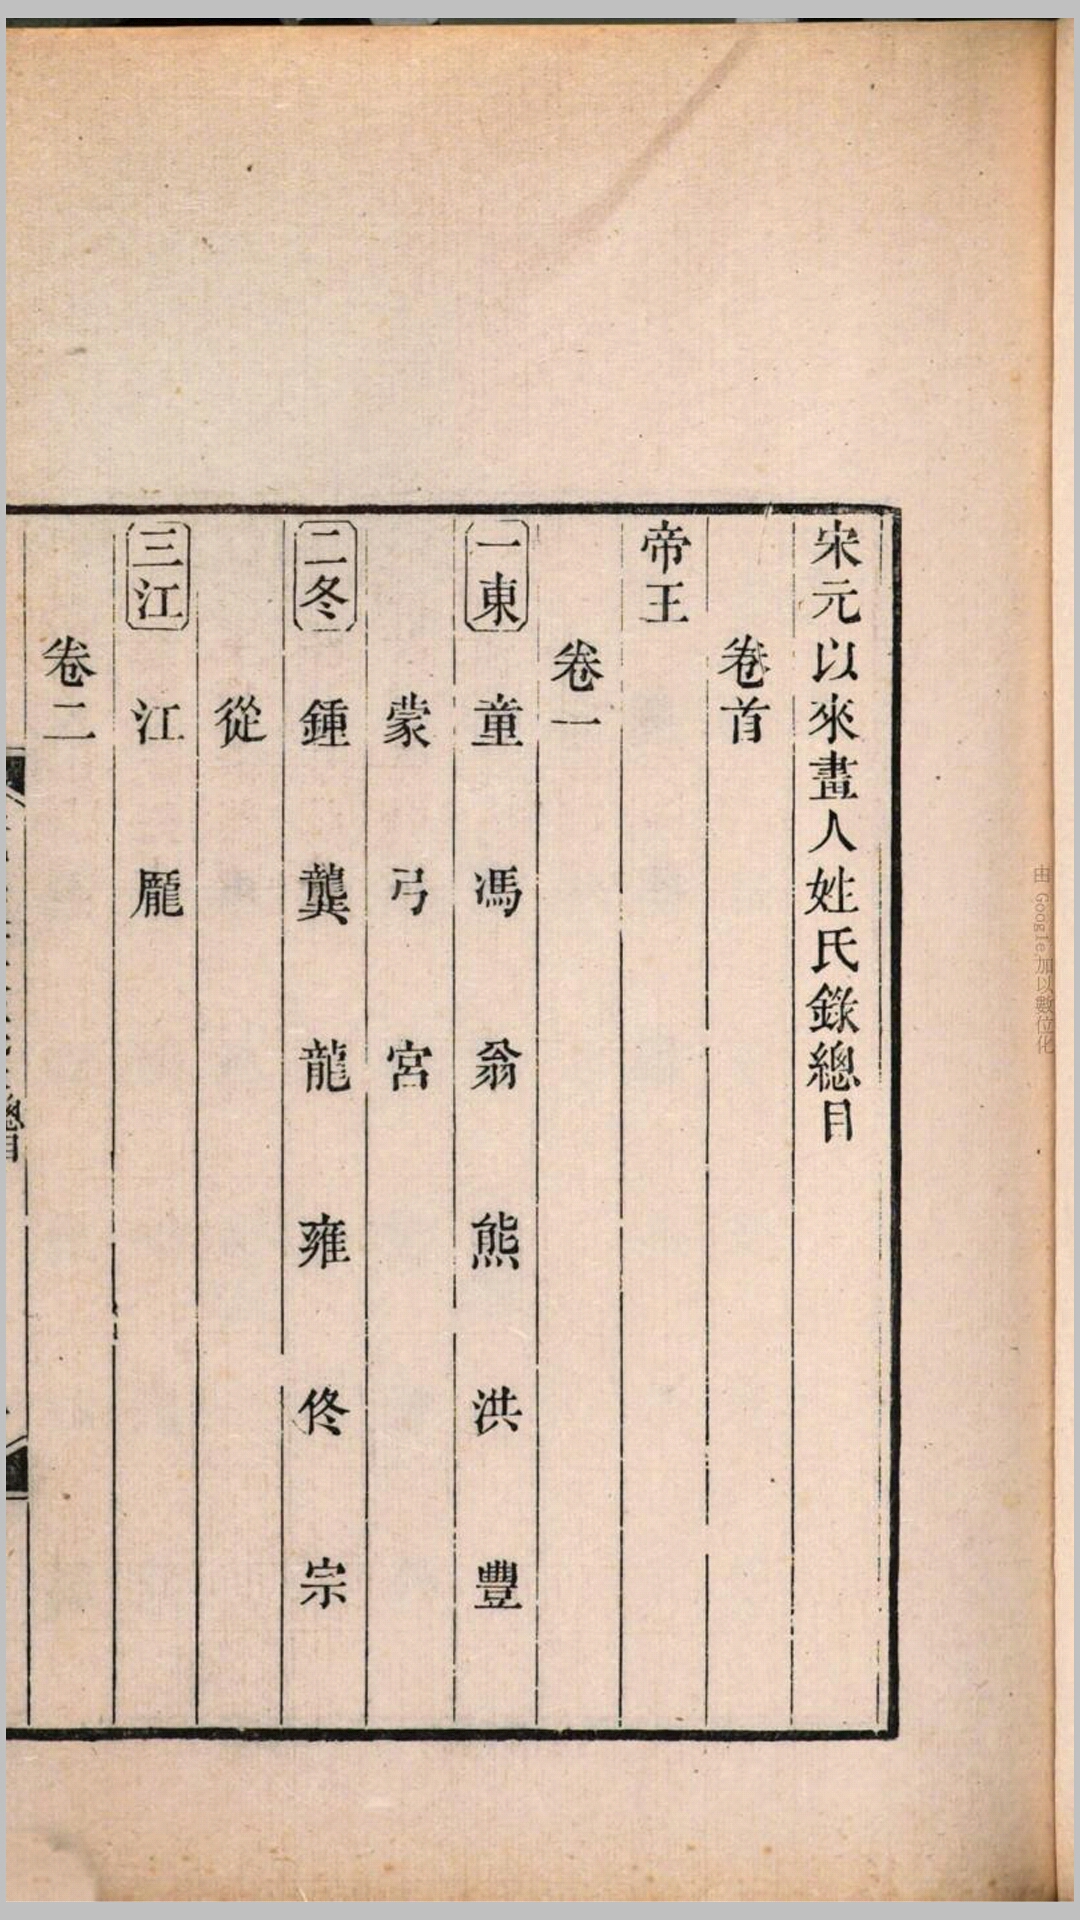 宋元以來畫人姓氏錄總目
卷首
帝王
卷一
一東 童 馮 翁 熊 洪 豐
蒙 弓 宮
二冬 鍾 龔 龍 雍 佟 宗
從
三江 江 龐
卷二
總目
由 Google 加以數位化